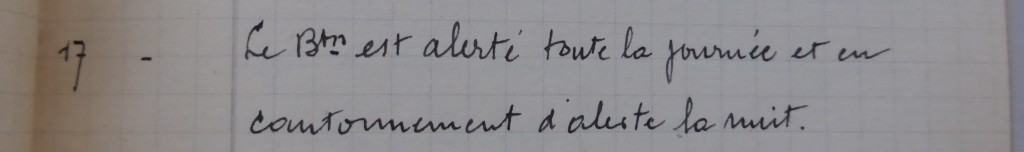 17 - Le Btn est alerté toute la journée et en
cantonnement d'alerte la nuit.